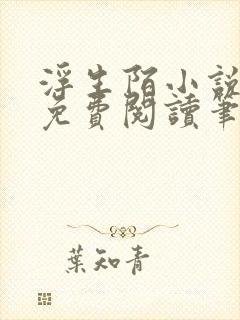 浮生陌小說
免費閱讀筆
葉知青